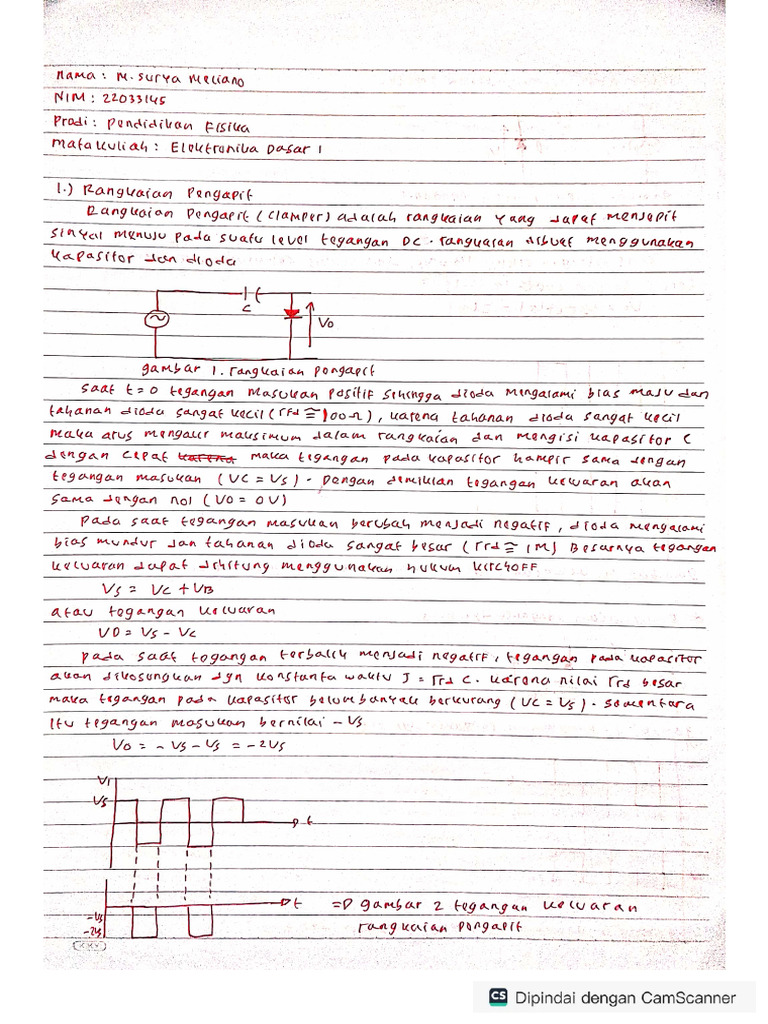 Nama : M. Surya Meliano
NIM : 22033145
Prodi : Pendidikan Fisika
Matakuliah : Elektronika Dasar 1
1.) Rangkaian Pengapit
Rangkaian Pengapit (Clamper) adalah rangkaian yang dapat menjepit
sinyal menuju pada suatu level tegangan DC. rangkaian dibuat menggunakan
kapasitor dan dioda
C
Vo
gambar 1. rangkaian pengapit
saat t=0 tegangan masukan positif sehingga dioda mengalami bias maju dan
tahanan dioda sangat kecil (rfd ≅ 100Ω), karena tahanan dioda sangat kecil
maka arus mengalir maksimum dalam rangkaian dan mengisi kapasitor C
dengan cepat karena maka tegangan pada kapasitor hampir sama dengan
tegangan masukan (VC = VS). Dengan demikian tegangan keluaran akan
sama dengan nol (VO = 0V)
pada saat tegangan masukan berubah menjadi negatif, dioda mengalami
bias mundur dan tahanan dioda sangat besar (rrd ≅ 1M) Besarnya tegangan
keluaran dapat dihitung menggunakan hukum KIRCHOFF
Vs = Vc + VB
atau tegangan keluaran
VO = Vs - Vc
pada saat tegangan terbalik menjadi negatif, tegangan pada kapasitor
akan dikosongkan dgn konstanta waktu J = rrd C. karena nilai rrd besar
maka tegangan pada kapasitor belum banyak berkurang (VC = VS). sementara
itu tegangan masukan bernilai -VS
Vo = - Vs - Vs = -2Vs
VI
Vs
t
t
=D gambar 2 tegangan keluaran
-Vs
rangkaian pengapit
-2Vs
CS Dipindai dengan CamScanner